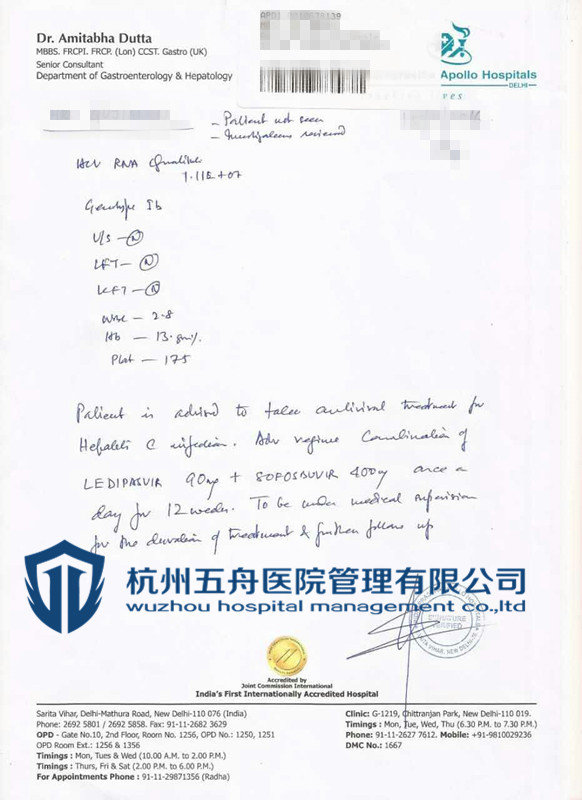 Dr. Amitabha Dutta
MBBS. FRCPI. FRCP. (Lon) CCST. Gastro (UK)
Senior Consultant
Department of Gastroenterology & Hepatology
Apollo Hospitals
DELHI
- Patient not seen
- Investigations reviewed
HCV RNA Qualitative
1.11E+07
Genotype Ib
U/S - N
LFT - N
KFT - N
WBC - 2.8
Hb - 13 gm%
Plat - 175
Patient is advised to take antiviral treatment for
Hepatitis C infection. Adv regime Combination of
LEDIPASVIR 90mg + SOFOSBUVIR 400mg once a
day for 12 weeks. To be under medical supervision
for the duration of treatment & further follow up
杭州五舟医院管理有限公司
wuzhou hospital management co.,ltd
SIGNATURE
VERIFIED
Accredited by
Joint Commission International
India's First Internationally Accredited Hospital
Sarita Vihar, Delhi-Mathura Road, New Delhi-110 076 (India)
Phone: 2692 5801 / 2692 5858. Fax: 91-11-2682 3629
OPD - Gate No.10, 2nd Floor, Room No. 1256, OPD No.: 1250, 1251
OPD Room Ext.: 1256 & 1356
Timings : Mon, Tues & Wed (10.00 A.M. to 2.00 P.M.)
Timings : Thurs, Fri & Sat (2.00 P.M. to 6.00 P.M.)
For Appointments Phone : 91-11-29871356 (Radha)
Clinic: G-1219, Chittranjan Park, New Delhi-110 019.
Timings : Mon, Tue, Wed, Thu (6.30 P.M. to 7.30 P.M.)
Phone: 91-11-2627 7612. Mobile: +91-9810029236
DMC No.: 1667